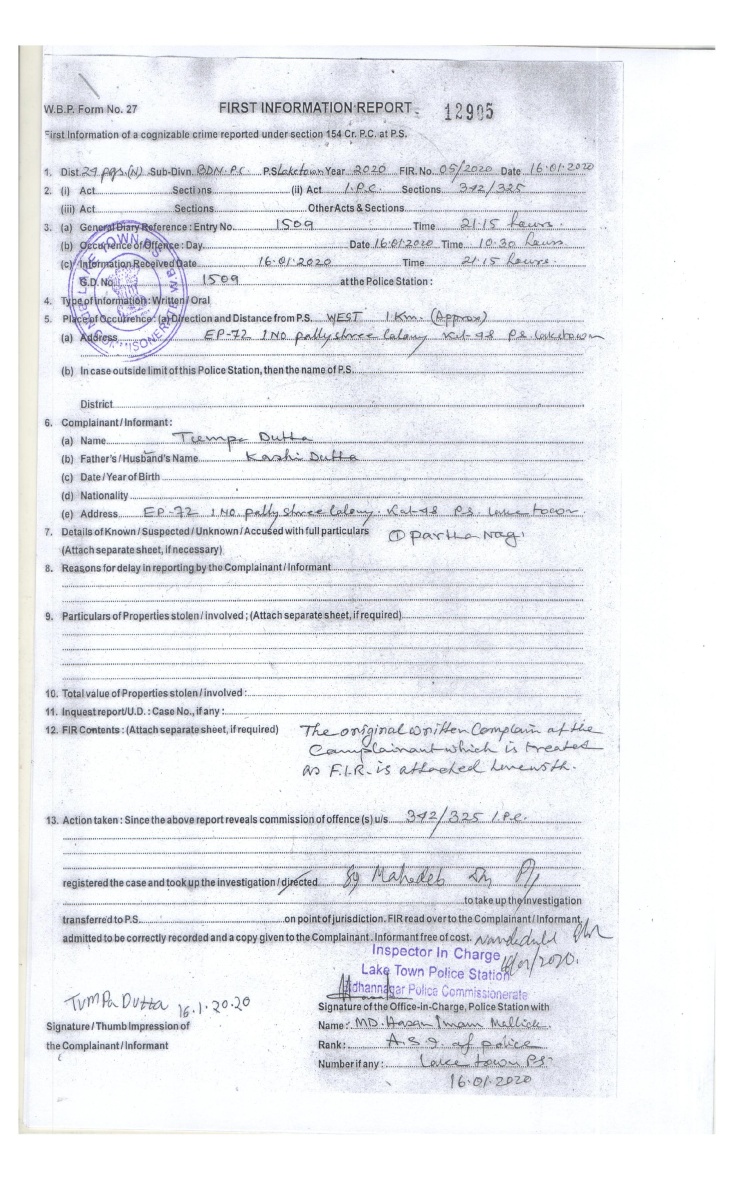 W.B.P. Form No. 27 FIRST INFORMATION REPORT 12905
First Information of a cognizable crime reported under section 154 Cr. P.C. at P.S.
1. Dist. 24 pgs.(N) Sub-Divn. BDN. P.C. P.S. Laketown Year 2020 FIR. No. 05/2020 Date 16.01.2020
2. (i) Act Sections (ii) Act I.P.C. Sections 342/325
(iii) Act Sections Other Acts & Sections
3. (a) General Diary Reference : Entry No. 1509 Time 21.15 hours.
(b) Occurrence of Offence : Day Date 16.01.2020 Time 10.30 hours
(c) Information Received Date 16.01.2020 Time 21.15 hours.
G.D. No. 1509 at the Police Station :
4. Type of information : Written / Oral
5. Place of Occurrence : (a) Direction and Distance from P.S. WEST 1 Km. (Approx)
(a) Address EP-72 1 NO pally shree Colony Kol-48 P.S. Laketown
(b) In case outside limit of this Police Station, then the name of P.S.
District
6. Complainant / Informant :
(a) Name Tumpa Dutta
(b) Father's / Husband's Name Kashi Dutta
(c) Date / Year of Birth
(d) Nationality
(e) Address EP-72 1 NO. pally shree Colony. Kol-48 P.S. Lake town.
7. Details of Known / Suspected / Unknown / Accused with full particulars ① partha Nag.
(Attach separate sheet, if necessary)
8. Reasons for delay in reporting by the Complainant / Informant
9. Particulars of Properties stolen / involved ; (Attach separate sheet, if required)
10. Total value of Properties stolen / involved :
11. Inquest report/U.D. : Case No., if any :
12. FIR Contents : (Attach separate sheet, if required) The original written Complain of the
Complainant which is treated
as F.I.R. is attached herewith.
13. Action taken : Since the above report reveals commission of offence (s) u/s 342/325 I.P.C.
registered the case and took up the investigation / directed Mahadeb
to take up the investigation
transferred to P.S. on point of jurisdiction. FIR read over to the Complainant / Informant,
admitted to be correctly recorded and a copy given to the Complainant. Informant free of cost.
Inspector In Charge
Lake Town Police Station
Bidhannagar Police Commissionerate
Tumpa Dutta 16.1.2020
Signature of the Office-in-Charge, Police Station with
Signature / Thumb Impression of Name : MD. Hasan Imam Mallick
the Complainant / Informant Rank : A.S.I. of police
Number if any : Lake town P.S.
16.01.2020